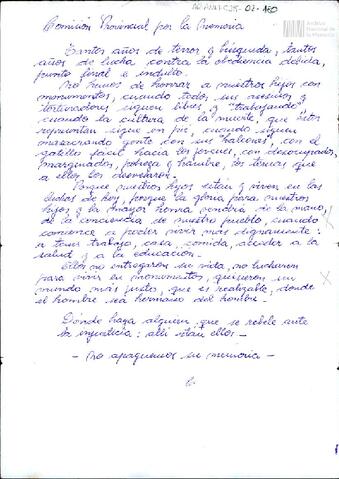 AR-ANM-CSR-02-180
Archivo
Nacional de
la Memoria
Comisión Provincial por la Memoria
Tantos años de terror y búsqueda, tantos
años de lucha contra la obediencia debida,
punto final e indulto.
No hemos de honrar a nuestros hijos con
monumentos, cuando todos sus asesinos y
torturadores siguen libres y "trabajando"
cuando la cultura de la muerte, que éstos
representan sigue en pie, cuando siguen
masacrando gente con sus "halcones", con el
gatillo fácil hacia los jóvenes, con desocupados,
marginados, pobreza y hambre, los temas que
a ellos los desvelaron.
Porque nuestros hijos están y viven en las
luchas de hoy, porque la gloria para nuestros
hijos y la mayor honra vendrá de la mano,
de la conciencia de nuestro pueblo, cuando
comience a poder vivir más dignamente:
a tener trabajo, casa, comida, acceder a la
salud y a la educación.
Ellos no entregaron su vida, no lucharon
para vivir en monumentos, quisieron un
mundo más justo, que es realizable, donde
el hombre sea hermano del hombre.
Dónde haya alguien que se rebele ante
la injusticia: allí están ellos.-
- No apaguemos su memoria -